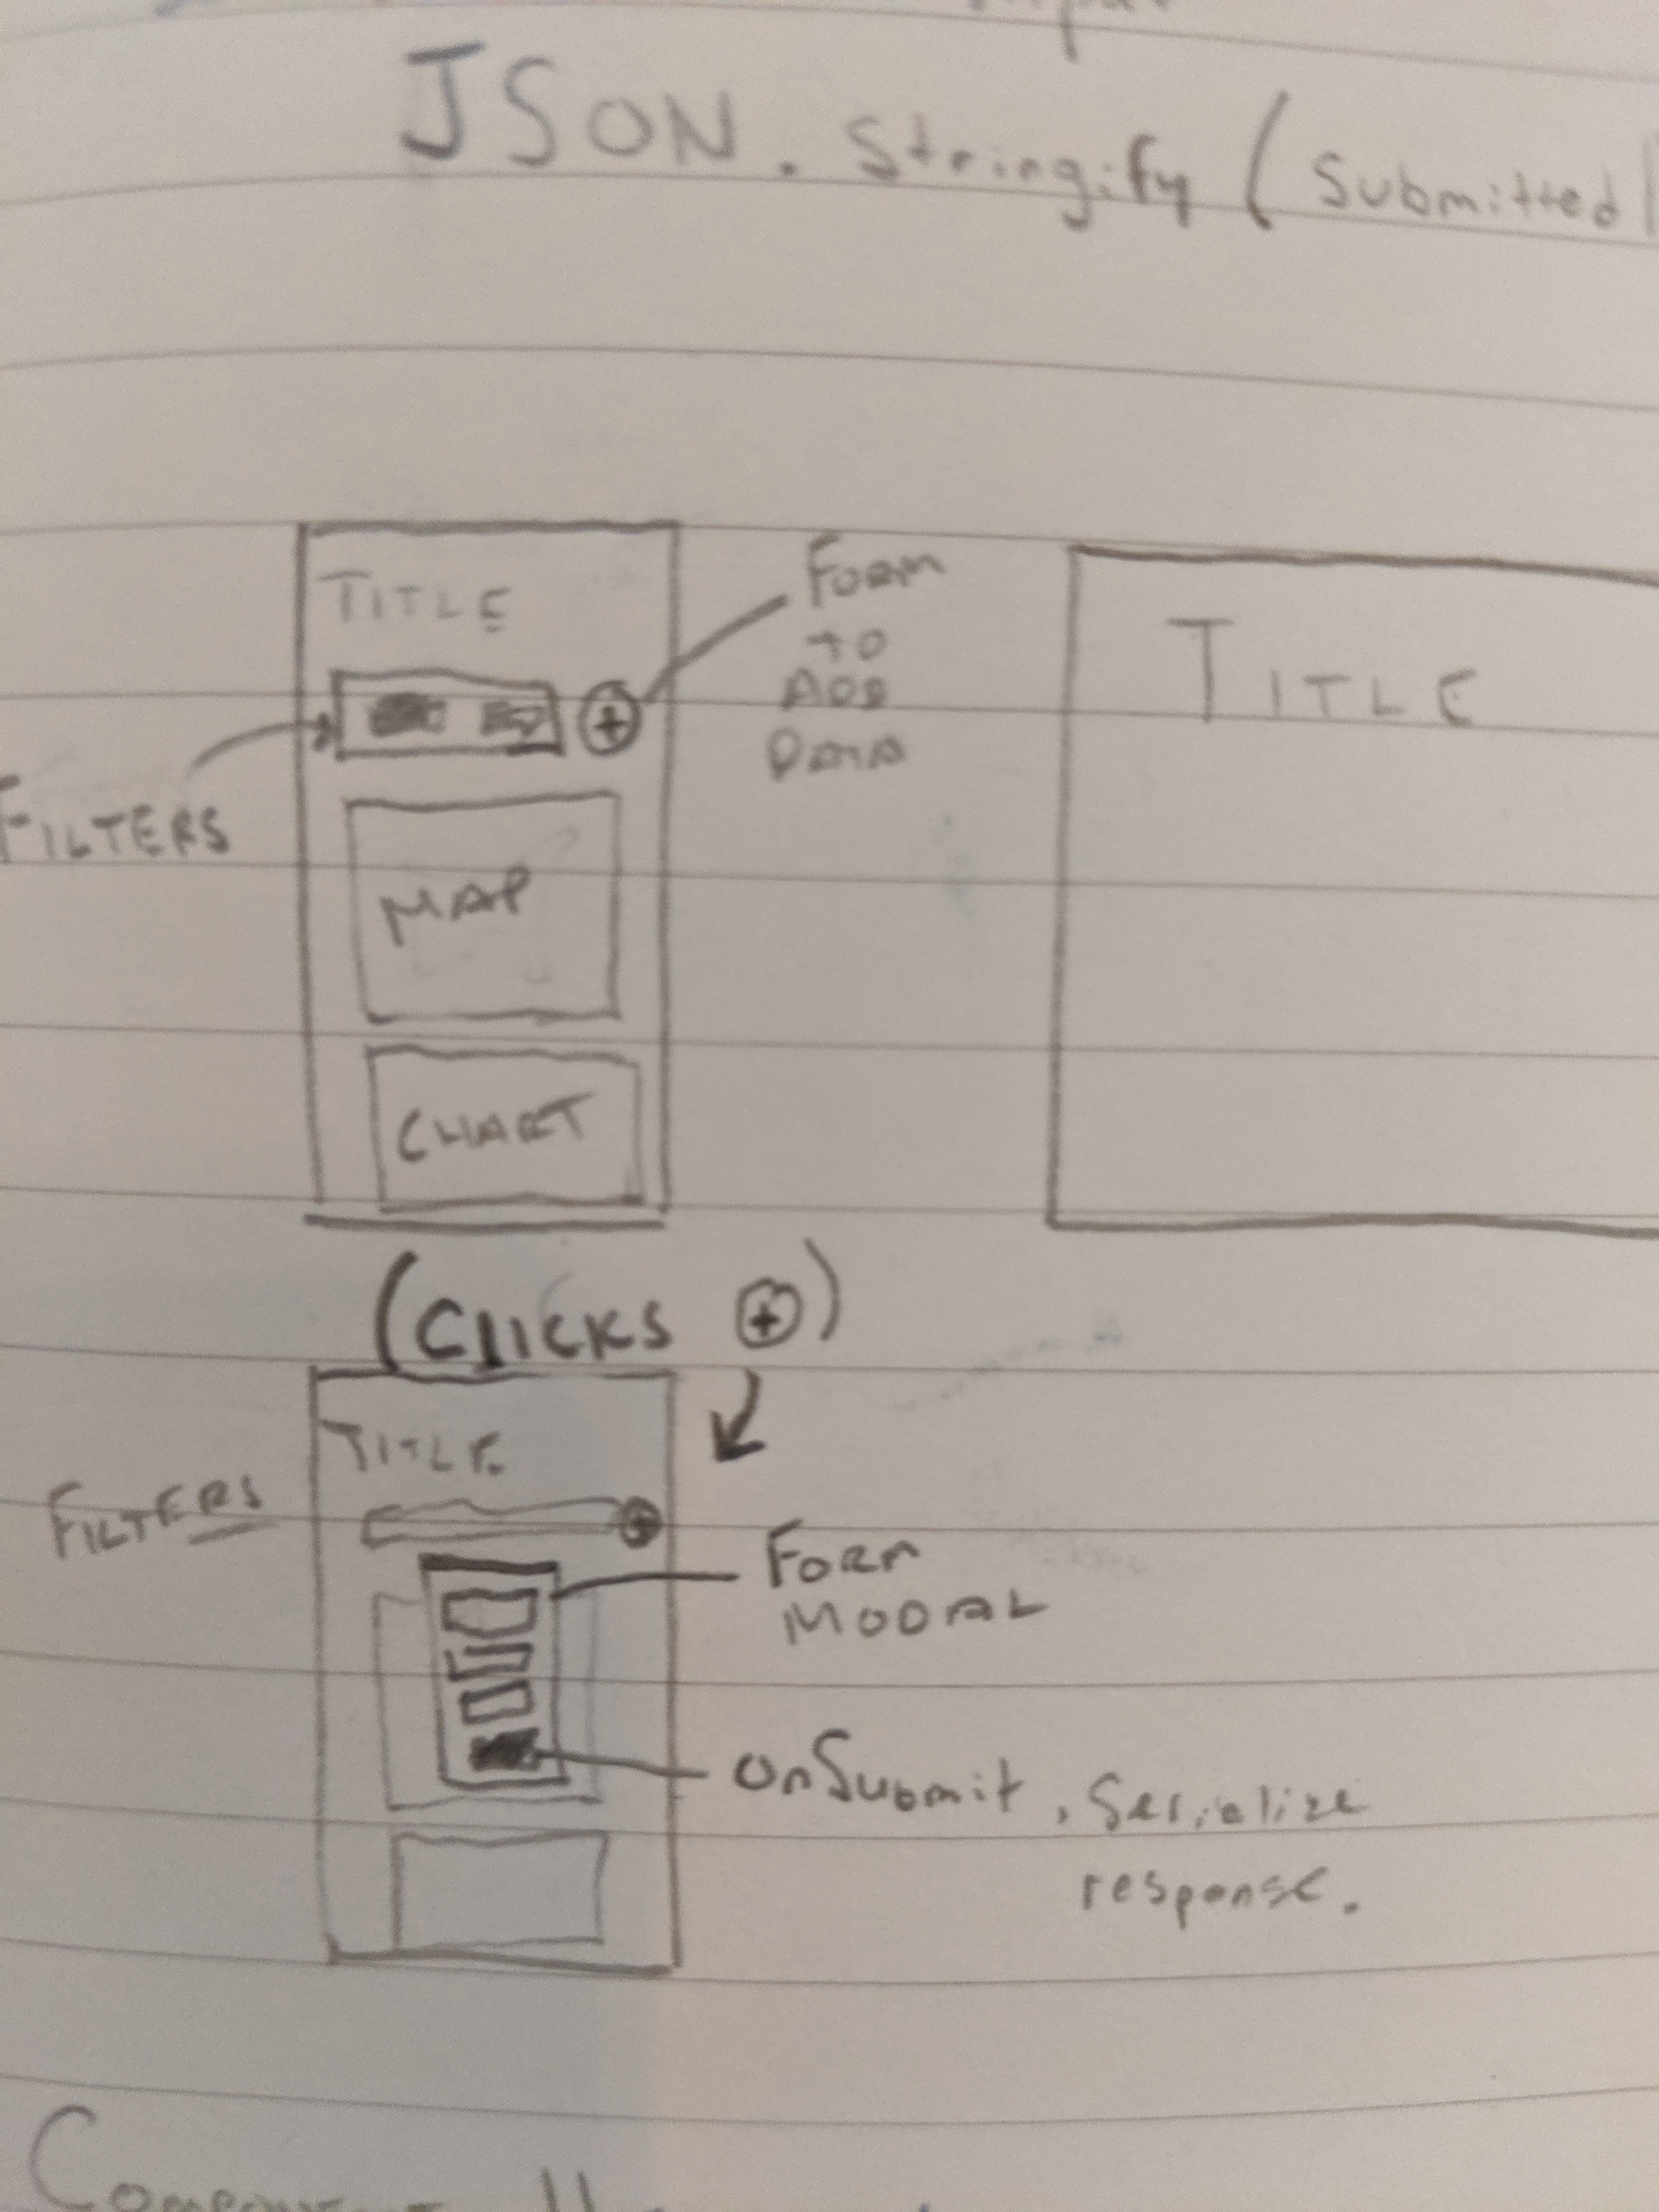 JSON.Stringify(Submitted
TITLE
Form
to
ADD
DATA
TITLE
FILTERS
MAP
CHART
(Clicks +)
TITLE
FILTERS
Form
MODAL
onSubmit, Serialize
response.
Component